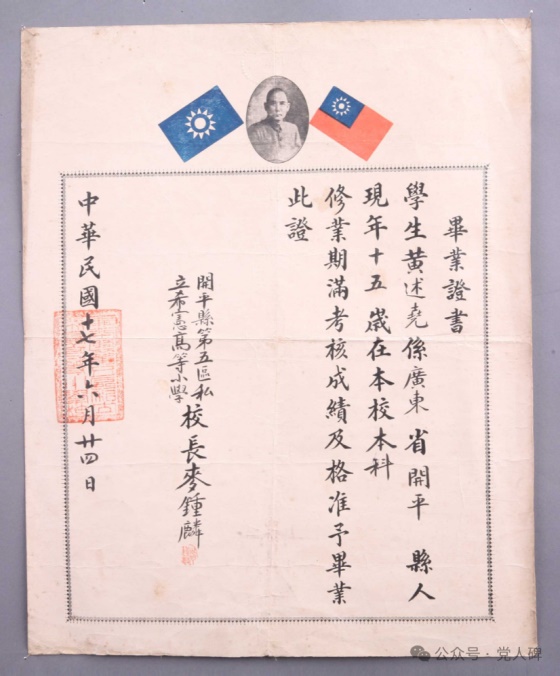 畢業證書
學生黄述堯係廣東省開平縣人
現年十五歲在本校本科
修業期滿考核成績及格准予畢業
此證
開平縣第五區私
立希憲高等小學
校長麥鍾麟
中華民國十七年六月廿四日
公众号·党人碑